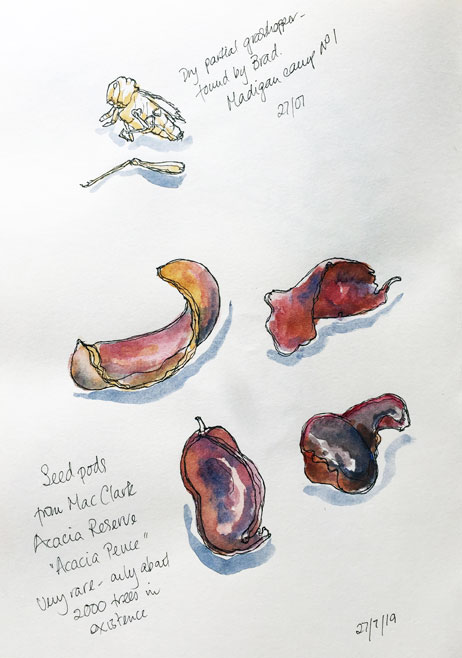 Dry partial grasshopper -
found by Brad.
Madigan camp Nº1
27/07
Seed pods
from Mac Clark
Acacia Reserve
"Acacia Peuce"
Very rare - only about
2000 trees in
existence
27/7/19